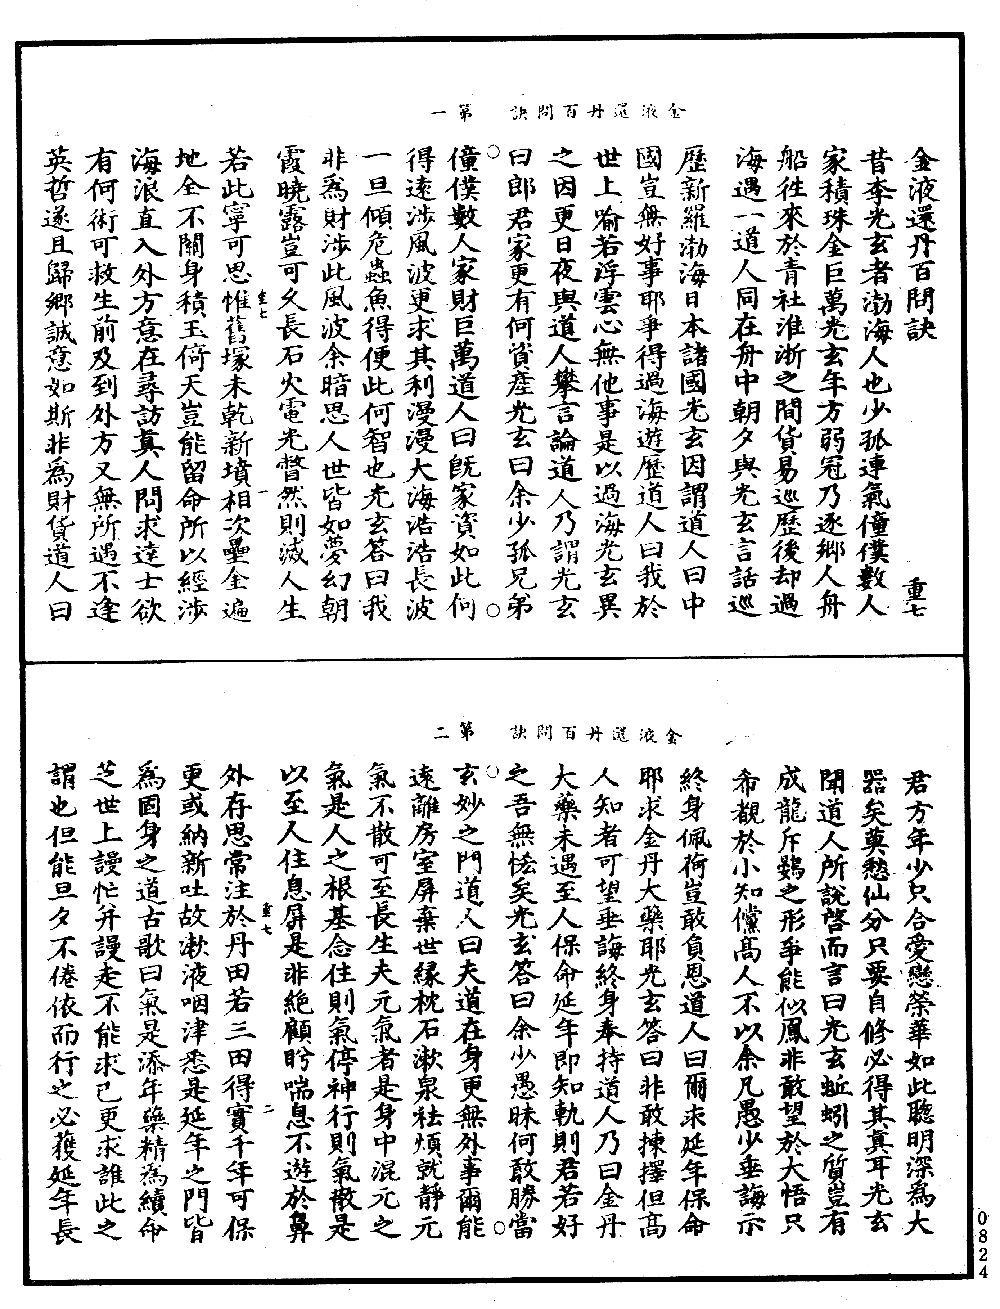 金液還丹百問訣 第一
金液還丹百問訣 重七
昔李光玄者渤海人也少孤連氣僮僕數人
家積珠金巨萬光玄年方弱冠乃逐鄉人舟
船往來於青社淮浙之間貨易巡歷後却過
海遇一道人同在舟中朝夕與光玄言話巡
歷新羅渤海日本諸國光玄因謂道人曰中
國豈無好事耶爭得過海遊歷道人曰我於
世上喻若浮雲心無他事是以過海光玄異
之因更日夜與道人攀言論道人乃謂光玄
曰郎君家更有何資產光玄曰余少孤兄弟
僮僕數人家財巨萬道人曰旣家資如此何
得遠涉風波更求其利漫漫大海浩浩長波
一旦傾危蟲魚得便此何智也光玄答曰我
非爲財涉此風波余暗思人世皆如夢幻朝
霞曉露豈可久長石火電光瞥然則滅人生
若此寧可思惟舊塚未乾新墳相次壘金遍
地全不關身積玉倚天豈能留命所以經涉
海浪直入外方意在尋訪眞人問求達士欲
有何術可救生前及到外方又無所遇不逢
英哲遂且歸鄉誠意如斯非爲財貨道人曰
重七
一
金液還丹百問訣 第二
君方年少只合愛戀榮華如此聰明深爲大
器矣莫愁仙分只要自修必得其眞耳光玄
聞道人所說啓而言曰光玄蚯蚓之質豈有
成龍斥鷃之形爭能似鳳非敢望於大悟只
希覩於小知儻髙人不以余凡愚少垂誨示
終身佩荷豈敢負恩道人曰爾求延年保命
耶求金丹大藥耶光玄答曰非敢揀擇但髙
人知者可望垂誨終身奉持道人乃曰金丹
大藥未遇至人保命延年即知軌則君若好
之吾無恡矣光玄答曰余少愚昧何敢勝當
玄妙之門道人曰夫道在身更無外事爾能
遠離房室屏棄世緣枕石漱泉祛煩就靜元
氣不散可至長生夫元氣者是身中混元之
氣是人之根基念住則氣停神行則氣散是
以至人住息屏是非絕顧眄喘息不遊於鼻
外存思常注於丹田若三田得實千年可保
更或納新吐故漱液咽津悉是延年之門皆
爲固身之道古歌曰氣是添年藥精爲續命
芝世上謾忙并謾走不能求已更求誰此之
謂也但能旦夕不倦依而行之必獲延年長
重七
二
0824